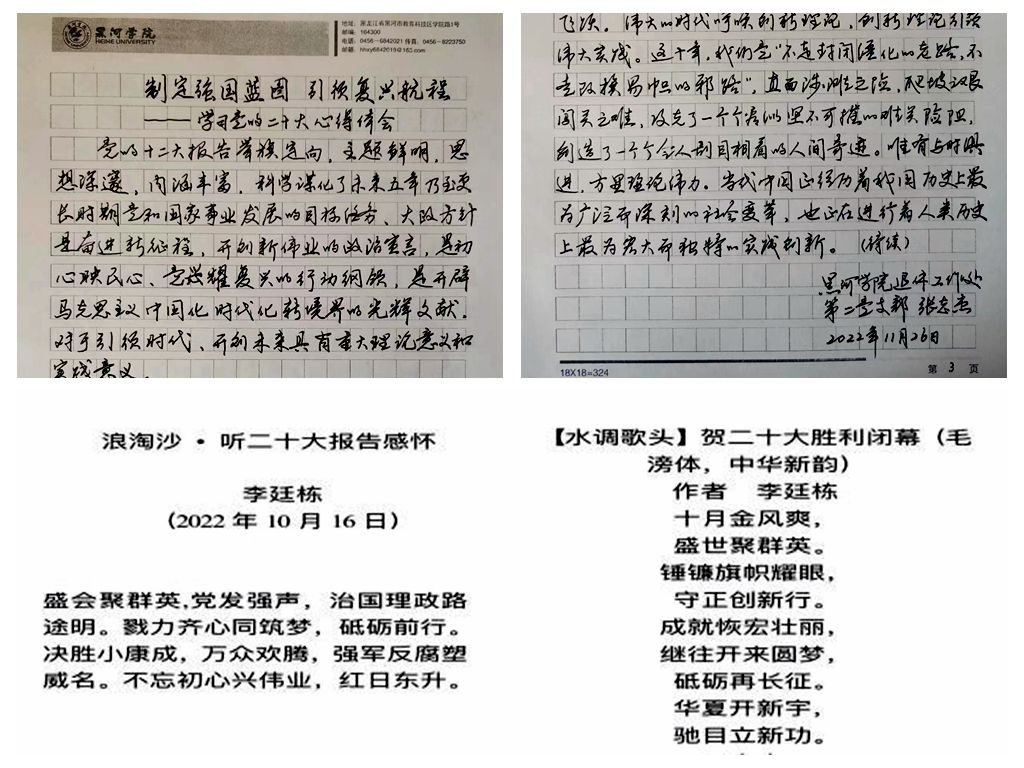 黑河学院
HEIHE UNIVERSITY
地址：黑龙江省黑河市教育科技区学院路1号
邮编：164300
电话：0456-6842021 传真：0456-8223750
邮箱：hhxy6842019@163.com
制定强国蓝图 引领复兴航程
——学习党的二十大心得体会
党的十二大报告举旗定向，主题鲜明，思
想深邃，内涵丰富，科学谋化了未来五年乃至更
长时期党和国家事业发展的目标任务、大政方针
是奋进新征程，开创新伟业的政治宣言，是初
心映民心、党兴耀复兴的行动纲领，是开辟
马克思主义中国化时代化新境界的光辉文献。
对于引领时代、开创未来具有重大理论意义和
实践意义。
飞跃。伟大的时代呼唤创新理论，创新理论引领
伟大实践。这十年，我们党“不走封闭僵化的老路，不
走改旗易帜的邪路”，直面涉滩之险，爬坡之艰
闯关之难，攻克了一个个看似坚不可摧的难关险阻，
创造了一个个令人刮目相看的人间奇迹。唯有与时俱
进，方显强说伟力。当代中国正经历着我国历史上最
为广泛而深刻的社会变革，也正在进行着人类历史
上最为宏大而独特的实践创新。（待续）
黑河学院退休工作处
第二党支部 张志杰
2022年11月26日
18X18=324
第 3 页
浪淘沙·听二十大报告感怀
李廷栋
（2022 年 10 月 16 日）
盛会聚群英,党发强声，治国理政路
途明。戮力齐心同筑梦，砥砺前行。
决胜小康成，万众欢腾，强军反腐塑
威名。不忘初心兴伟业，红日东升。
【水调歌头】贺二十大胜利闭幕（毛
滂体，中华新韵）
作者 李廷栋
十月金风爽，
盛世聚群英。
锤镰旗帜耀眼，
守正创新行。
成就恢宏壮丽，
继往开来圆梦，
砥砺再长征。
华夏开新宇，
驰目立新功。